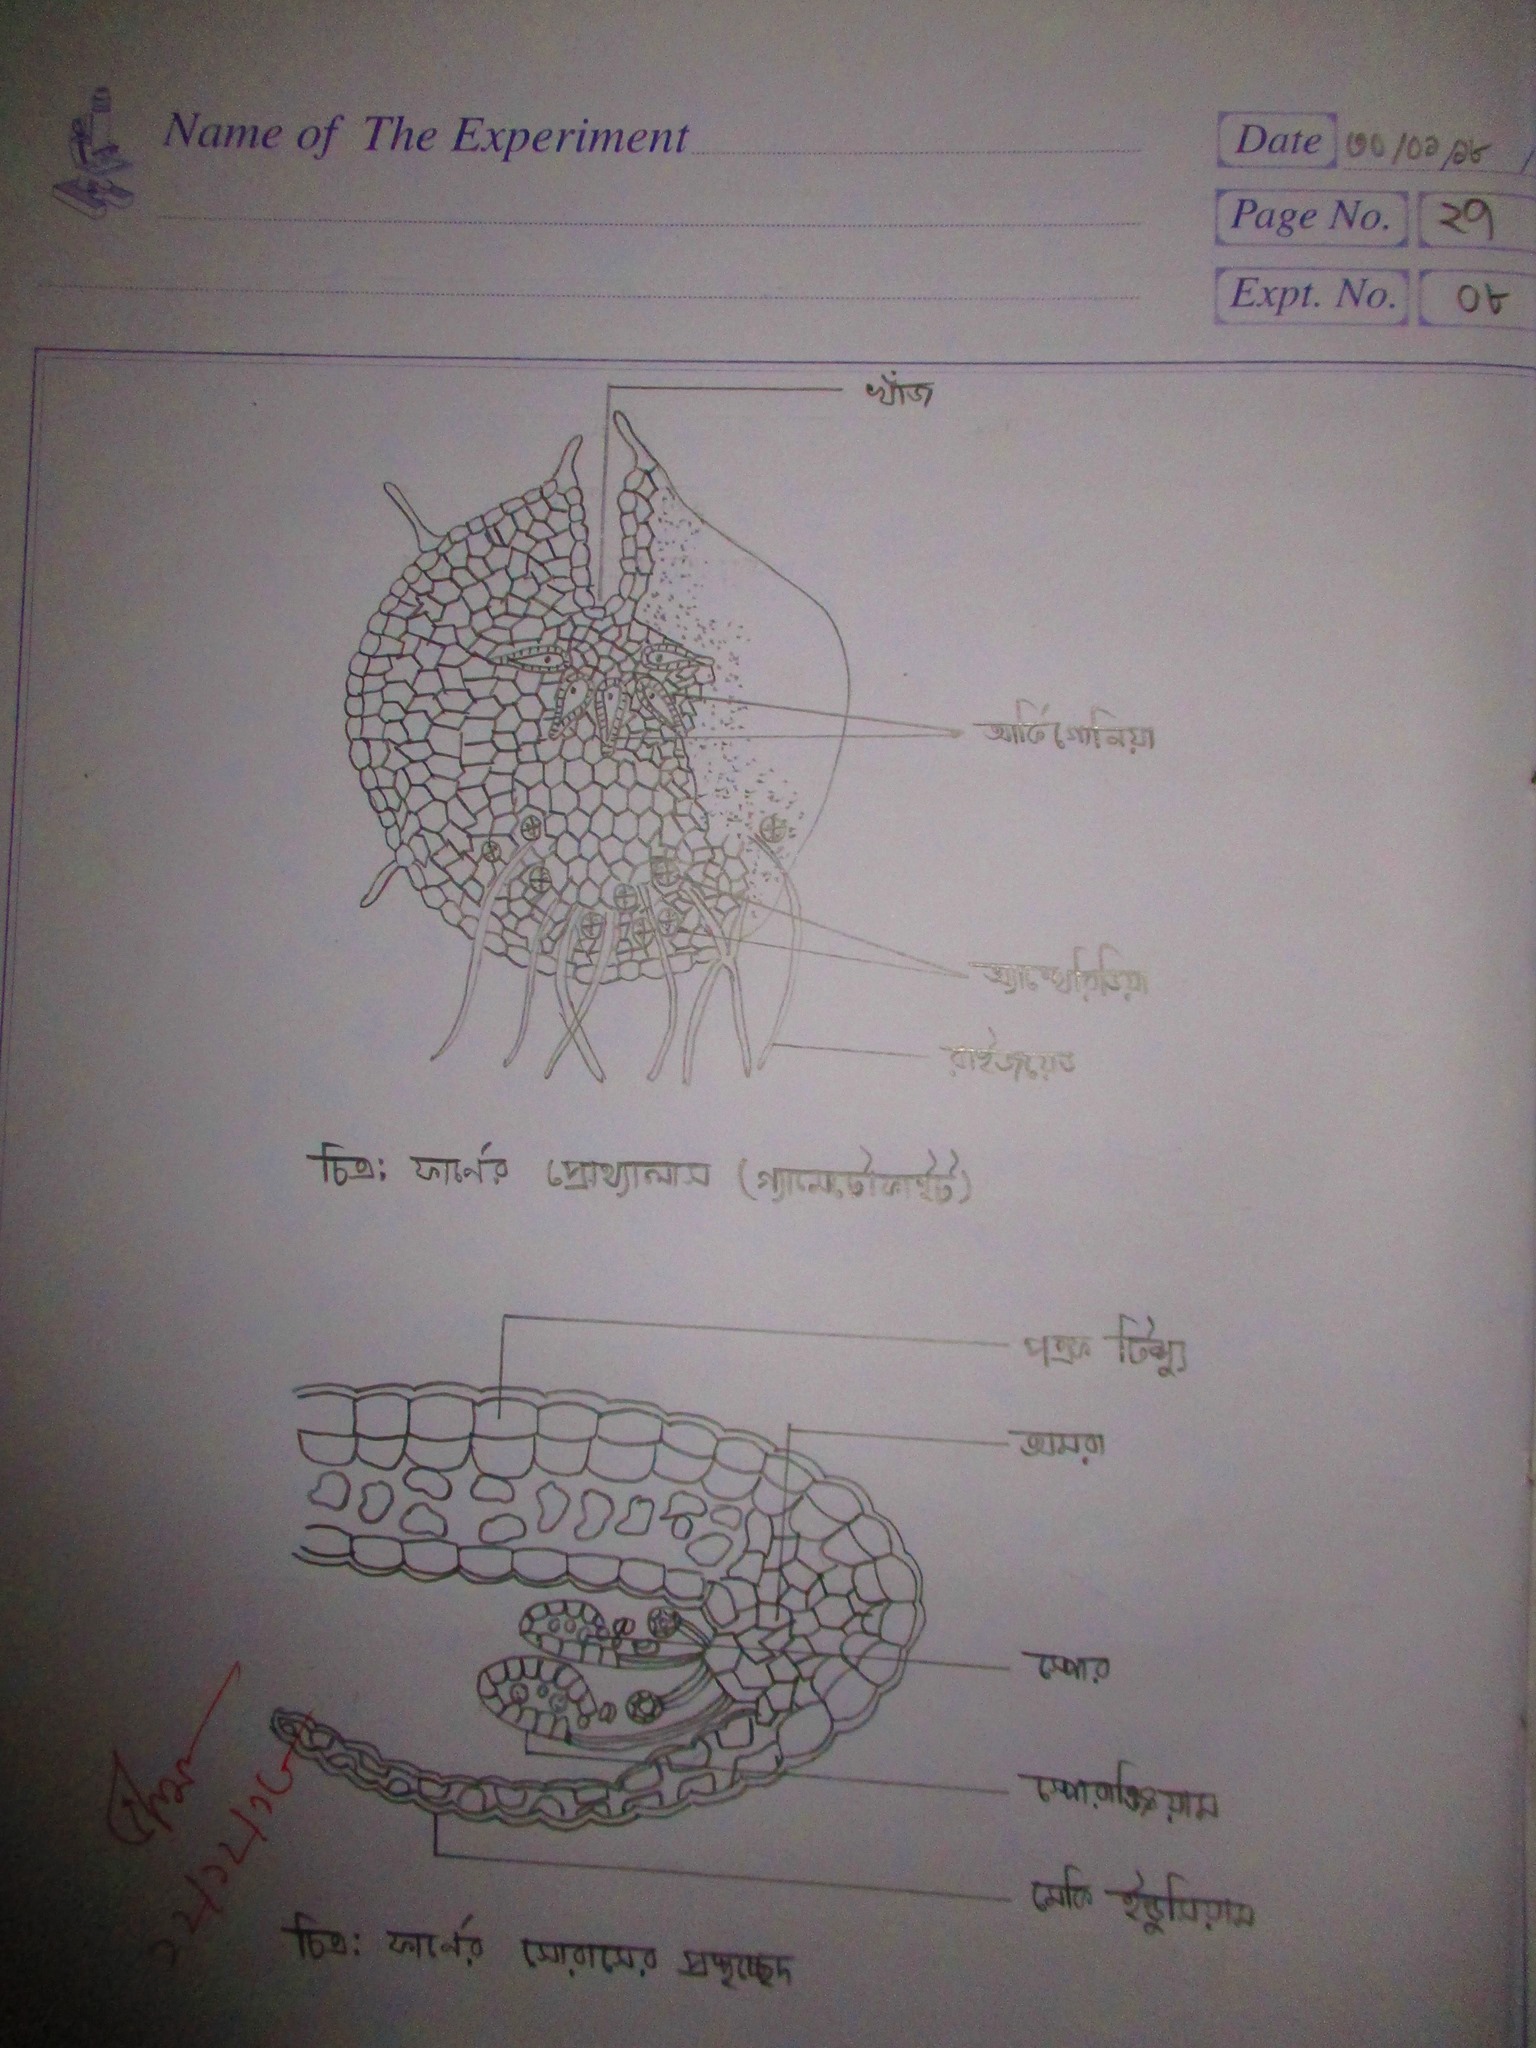 Name of The Experiment
Date ৩০/০১/১৮
Page No. ২৭
Expt. No. ০৮
খাঁজ
আর্কিগোনিয়া
অ্যান্থেরিডিয়া
রাইজয়েড
চিত্র: ফার্নের প্রোথ্যালাস (গ্যামেটোফাইট)
পত্রক টিস্যু
অমরা
স্পোর
স্পোরাঞ্জিয়াম
মেকি ইন্ডুসিয়াম
চিত্র: ফার্নের সোরাসের প্রস্থচ্ছেদ